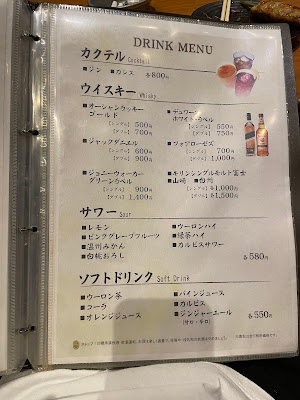 DRINK MENU
カクテル Cocktail
■ジン ■カシス 各800円
ウイスキー Whisky
■オーシャンラッキー
ゴールド
【シングル】 500円
【ダブル】 700円
■ジャックダニエル
【シングル】 600円
【ダブル】 900円
■ジョニーウォーカー
グリーンラベル
【シングル】 900円
【ダブル】 1,400円
■デュワーズ
ホワイト・ラベル
【シングル】 550円
【ダブル】 750円
■フォアローゼズ
【シングル】 700円
【ダブル】 1,000円
■キリンシングルモルト富士
■山崎 ■白州
【シングル】 各1,000円
【ダブル】 各1,500円
サワー Sour
■レモン
■ピンクグレープフルーツ
■温州みかん
■白桃おろし
■ウーロンハイ
■緑茶ハイ
■カルピスサワー
各580円
ソフトドリンク Soft Drink
■ウーロン茶
■コーラ
■オレンジジュース
■パインジュース
■カルピス
■ジンジャーエール
(甘口・辛口)
各550円